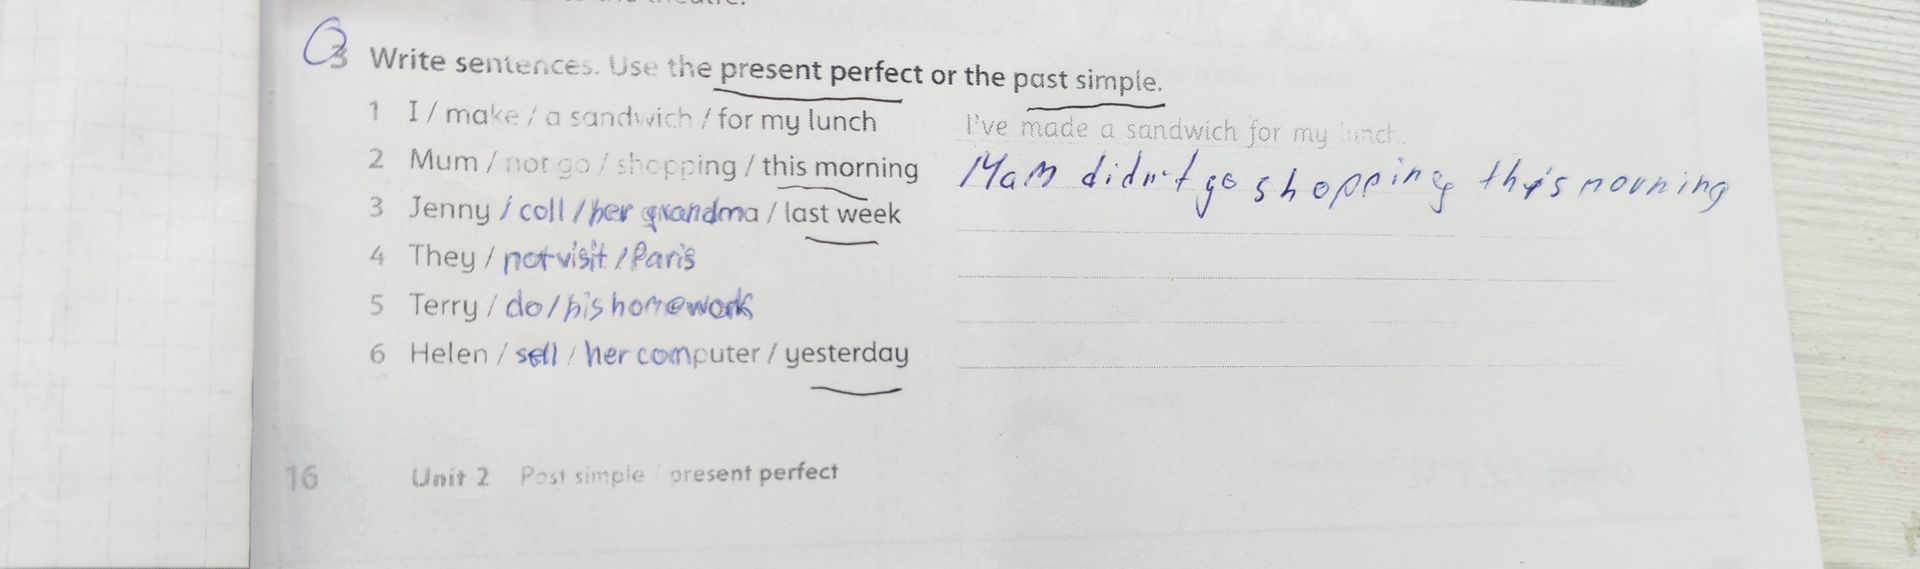 3 Write sentences. Use the present perfect or the past simple.
1 I / make / a sandwich / for my lunch I've made a sandwich for my lunch.
2 Mum / not go / shopping / this morning Mam didn't go shopping this morning
3 Jenny / coll / her grandma / last week
4 They / not visit / Paris
5 Terry / do / his homework
6 Helen / sell / her computer / yesterday
16 Unit 2 Past simple / present perfect